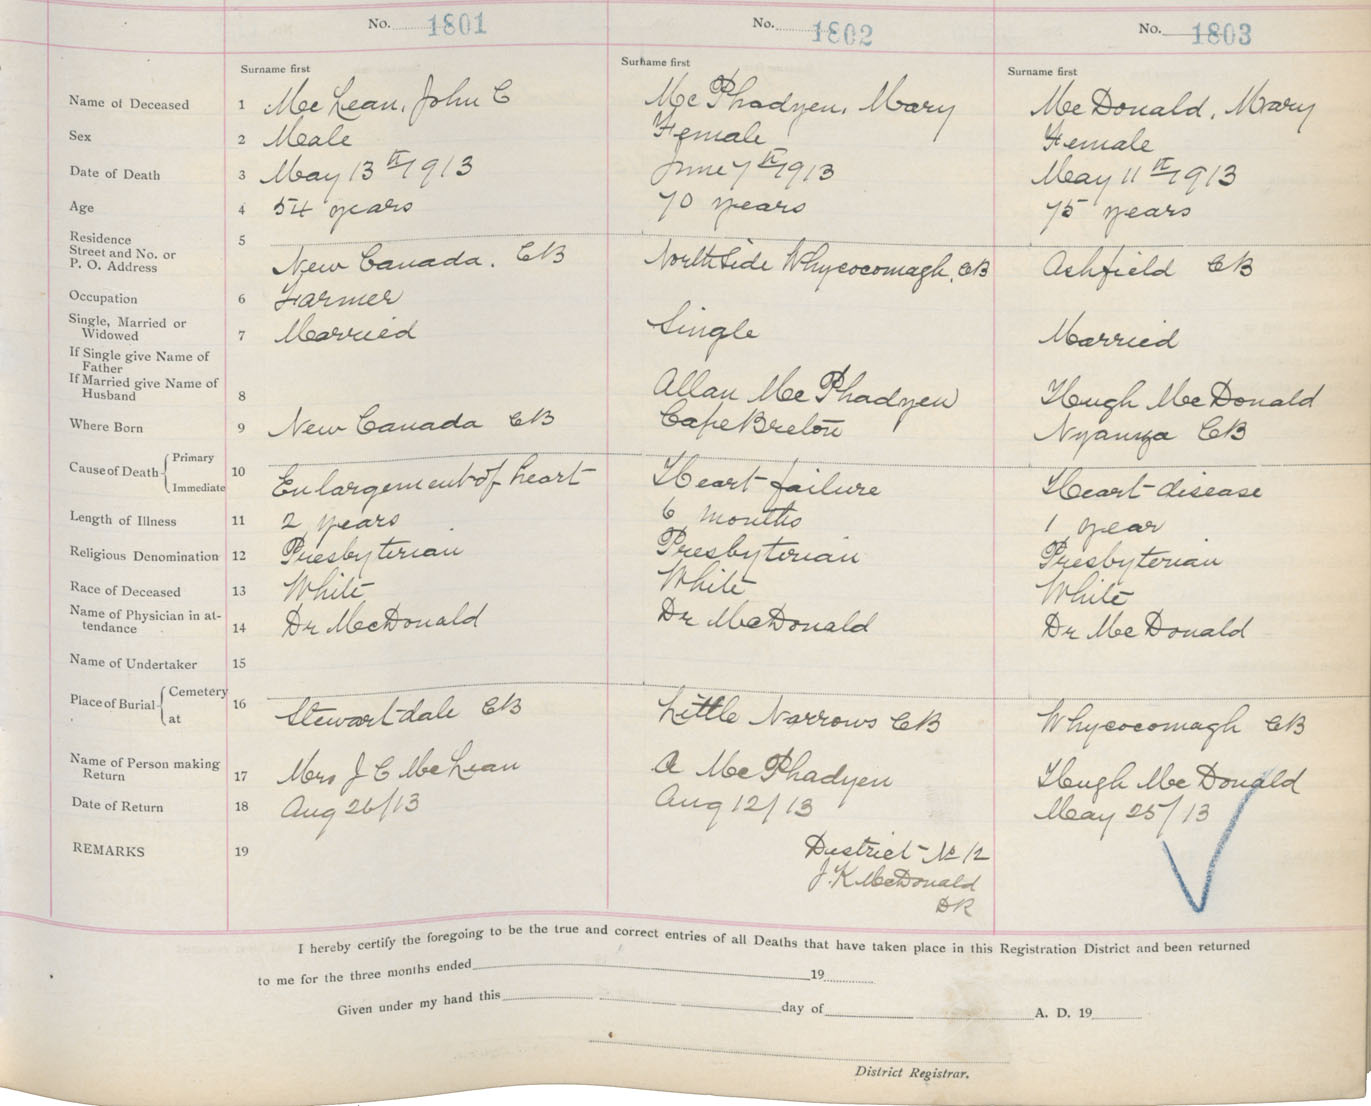 No. 1801 No. 1802 No. 1803
Surname first Surname first Surname first
Name of Deceased 1 McLean, John C McPhadyen, Mary McDonald, Mary
Sex 2 Male Female Female
Date of Death 3 May 13th 1913 June 7th 1913 May 11th 1913
Age 4 54 years 70 years 75 years
Residence 5
Street and No. or
P. O. Address New Canada. CB North Side Whycocomagh, CB Ashfield CB
Occupation 6 Farmer
Single, Married or
Widowed 7 Married Single Married
If Single give Name of
Father
If Married give Name of
Husband 8 Allan McPhadyen Hugh McDonald
Where Born 9 New Canada CB Cape Breton Nyanza CB
Cause of Death Primary 10
Immediate Enlargement of heart Heart failure Heart disease
Length of Illness 11 2 years 6 months 1 year
Religious Denomination 12 Presbyterian Presbyterian Presbyterian
Race of Deceased 13 White White White
Name of Physician in at-
tendance 14 Dr McDonald Dr McDonald Dr McDonald
Name of Undertaker 15
Place of Burial Cemetery 16
at Stewartdale CB Little Narrows CB Whycocomagh CB
Name of Person making
Return 17 Mrs J C McLean A McPhadyen Hugh McDonald
Date of Return 18 Aug 26/13 Aug 12/13 May 25/13
REMARKS 19 District No 12
J. K McDonald
DR
I hereby certify the foregoing to be the true and correct entries of all Deaths that have taken place in this Registration District and been returned
to me for the three months ended 19
Given under my hand this day of A. D. 19
District Registrar.